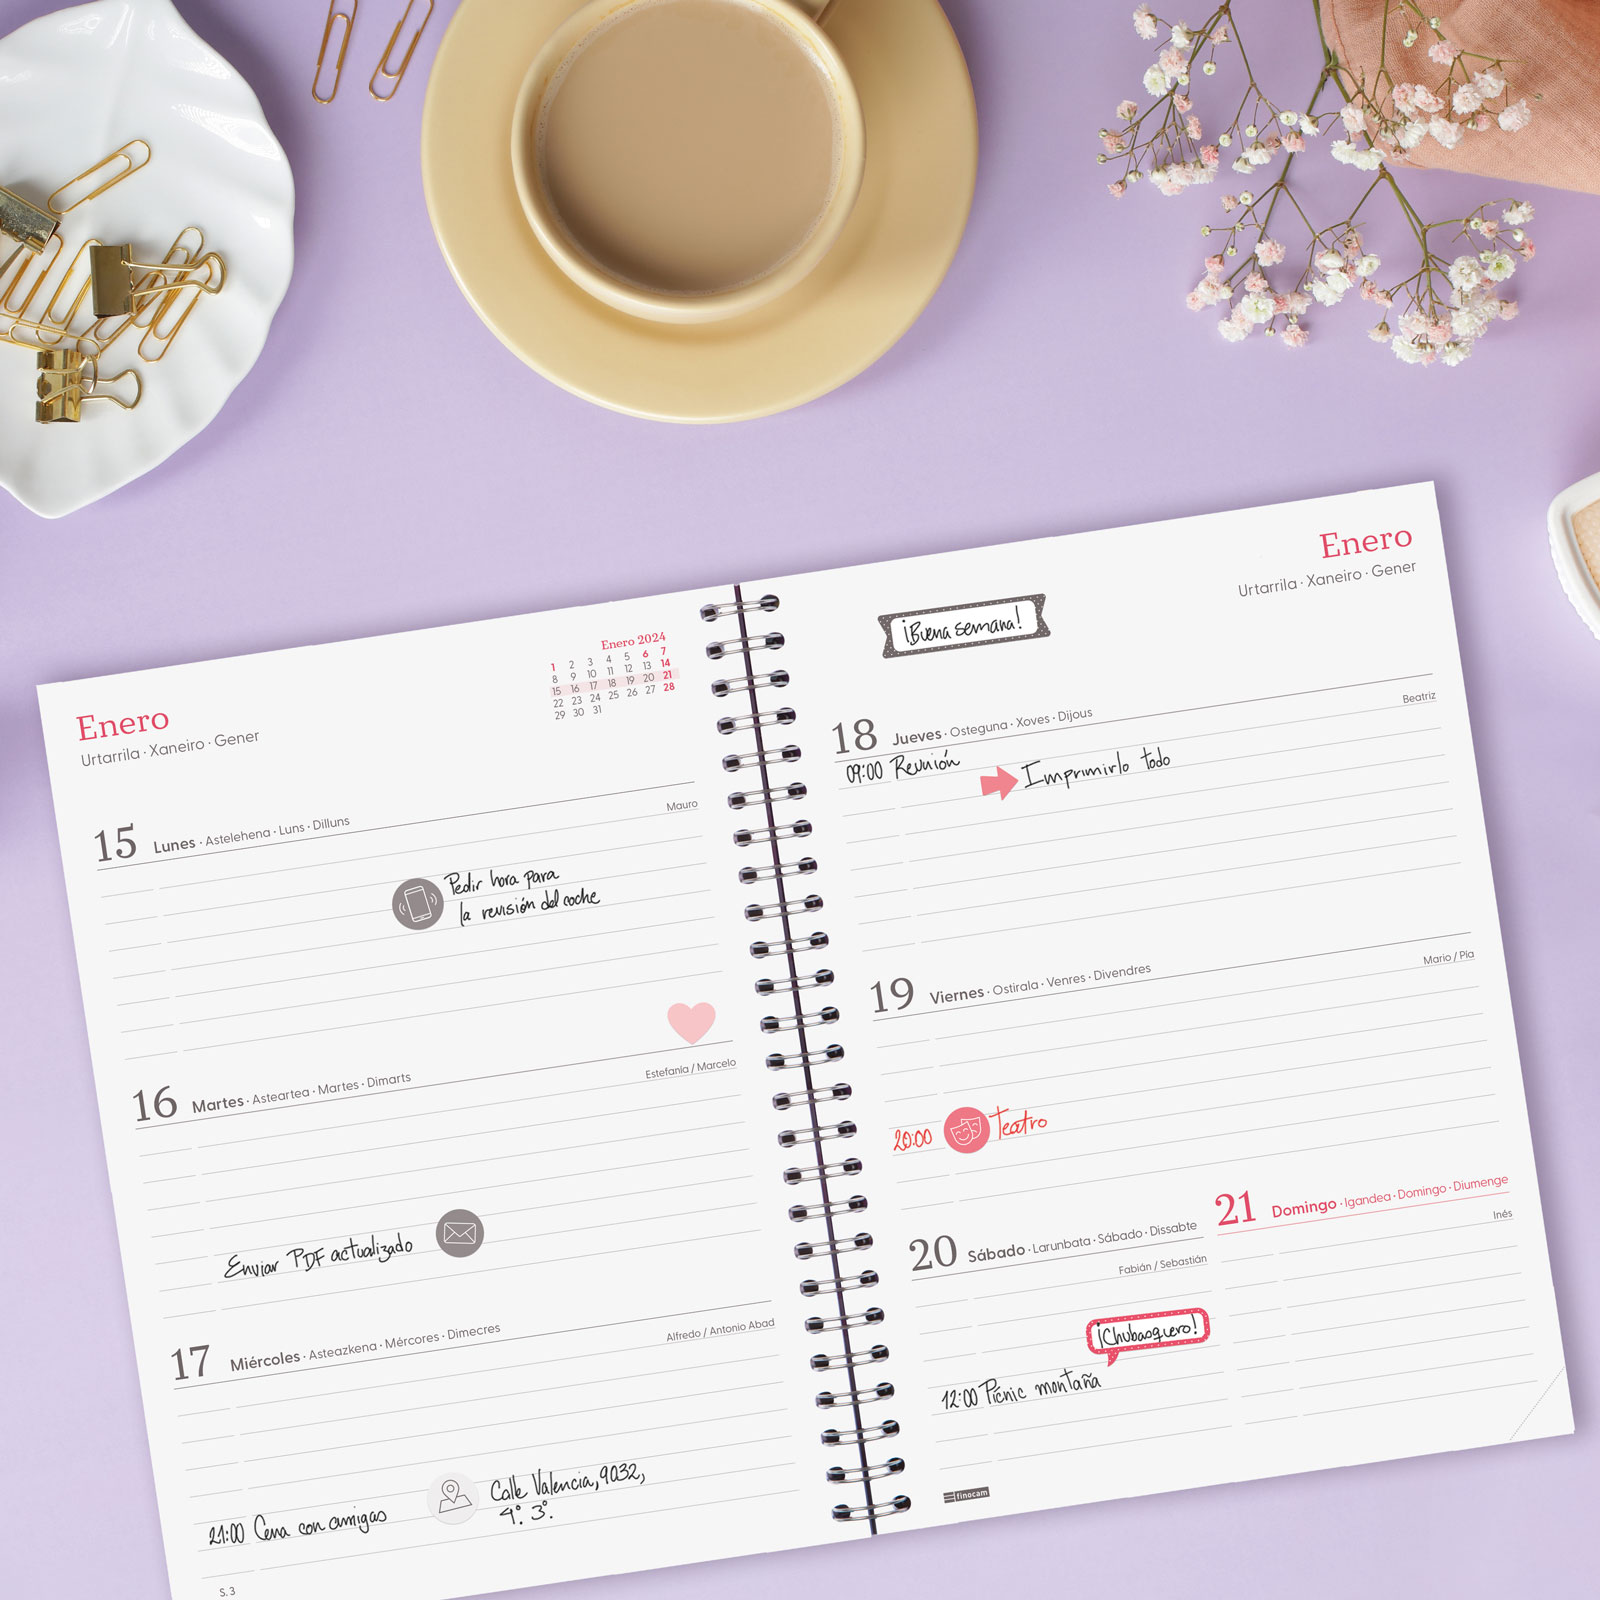 Enero
Urtarrila · Xaneiro · Gener
Enero 2024
1 2 3 4 5 6 7
8 9 10 11 12 13 14
15 16 17 18 19 20 21
22 23 24 25 26 27 28
29 30 31
15 Lunes · Astelehena · Luns · Dilluns
Mauro
Pedir hora para
la revisión del coche
16 Martes · Asteartea · Martes · Dimarts
Estefanía / Marcelo
Enviar PDF actualizado
17 Miércoles · Asteazkena · Mércores · Dimecres
Alfredo / Antonio Abad
21:00 Cena con amigas
Calle Valencia, 9032,
4º. 3º.
S. 3
Enero
Urtarrila · Xaneiro · Gener
¡Buena semana!
18 Jueves · Osteguna · Xoves · Dijous
Beatriz
09:00 Reunión
Imprimirlo todo
19 Viernes · Ostirala · Venres · Divendres
Mario / Pía
20:00 Teatro
20 Sábado · Larunbata · Sábado · Dissabte
Fabián / Sebastián
¡Chubasquero!
12:00 Picnic montaña
21 Domingo · Igandea · Domingo · Diumenge
Inés
finocam